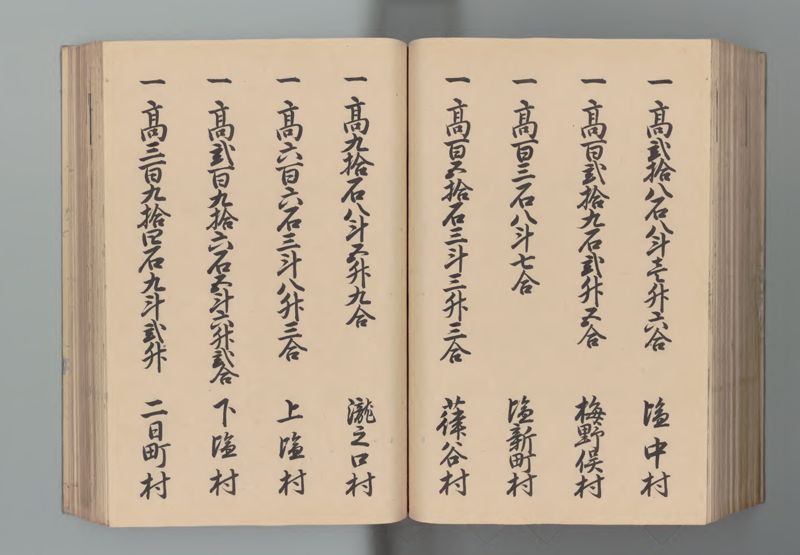 一 高弐拾八石八斗壱升六合 塩中村
一 高百弐拾九石弐升五合 梅野俣村
一 高百三石八斗七合 塩新町村
一 高百五拾石三斗三升三合 谷村
一 高九拾石八斗五升九合 瀧之口村
一 高六百六石三斗八升三合 上塩村
一 高弐百九拾六石五斗六升弐合 下塩村
一 高三百九拾四石九斗弐升 二日町村